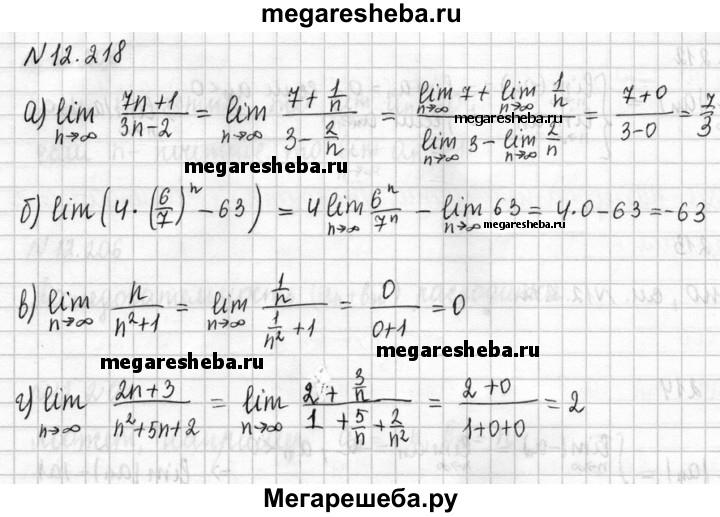 megaresheba.ru
N 12.218
а) lim n→∞ (7n+1)/(3n−2) = lim n→∞ (7 + 1/n)/(3 − 2/n) = (lim n→∞ 7 + lim n→∞ 1/n)/(lim n→∞ 3 − lim n→∞ 2/n) = (7+0)/(3−0) = 7/3
megaresheba.ru
megaresheba.ru
б) lim (4·(6/7)^n − 63) = 4 lim n→∞ 6^n/7^n − lim n→∞ 63 = 4·0 − 63 = −63
megaresheba.ru
в) lim n→∞ n/(n²+1) = lim n→∞ (1/n)/(1/n² + 1) = 0/(0+1) = 0
megaresheba.ru
megaresheba.ru
г) lim n→∞ (2n+3)/(n²+5n+2) = lim n→∞ (2 + 3/n)/(1 + 5/n + 2/n²) = (2+0)/(1+0+0) = 2
Мегарешеба.ру